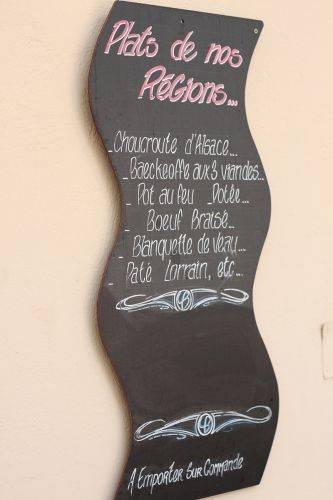 Plats de nos
RÉGIONS...
_Choucroute d'Alsace...
_Baeckeoffe aux 3 viandes...
_Pot au feu _Potée...
_Boeuf Braisé...
_Blanquette de veau...
_Pâté Lorrain, etc...
A EMPORTER SUR COMMANDE